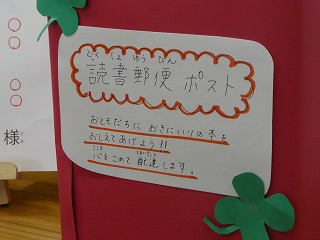 ○○
○○
様
どく しょ ゆう びん
読書郵便 ポスト
おともだちに おきにいりの本を
おしえてあげよう!!
こころ はいたつ
心をこめて 配達します。